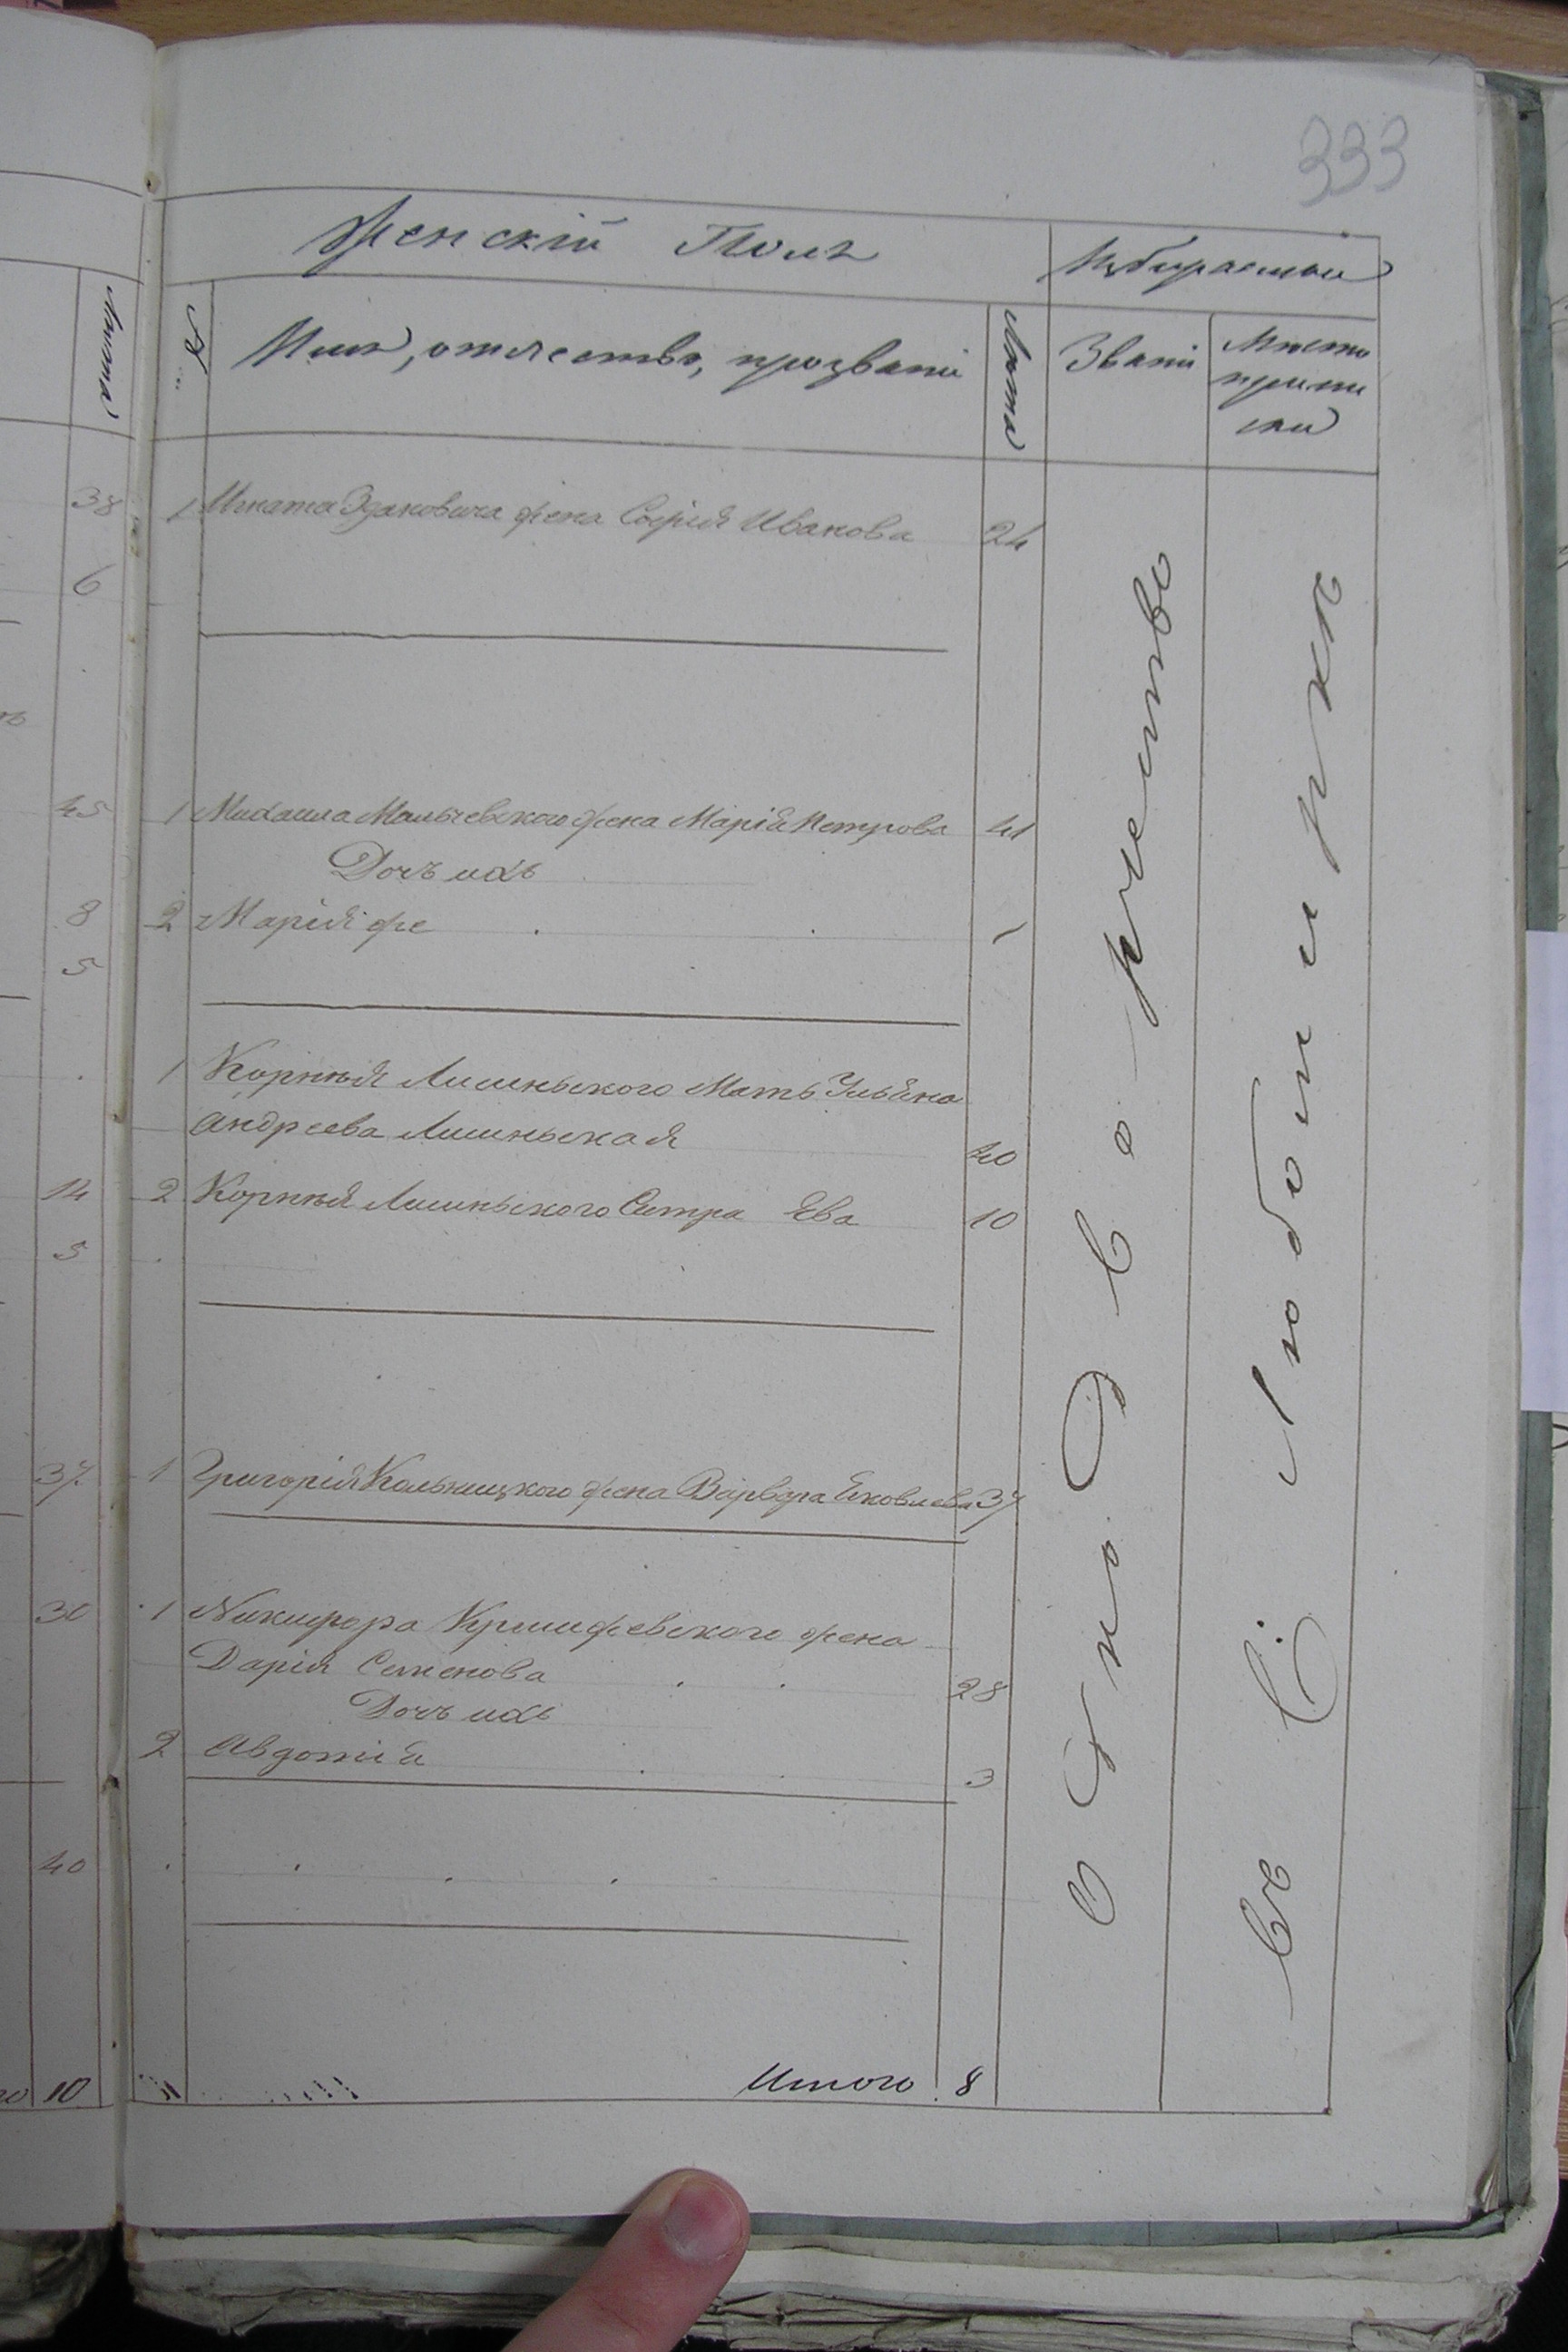 333
Женскій Полъ
Избираемыи
Лѣта
№
Имя, отчество, прозваніе
Лѣта
Званіе
Мѣсто
припи
ски
38
1 Игната Здановича жена Софія Иванова 24
6
45
1 Михаила Мальчевского жена Марія Петрова 41
Дочь ихъ
8
2 Марія же 1
5
1 Корнѣя Лисинского Мать Ульяна
Андреева Лисинская 40
14
2 Корнѣя Лисинского Сестра Ева 10
5
37
1 Григорія Кольницкого жена Варвара Яковлева 37
30
1 Никифора Кришжевского жена
Дарія Семенова 28
Дочь ихъ
2 Авдотія 3
40
10
Итого 8
Однодворчество
въ С. Любомиркѣ